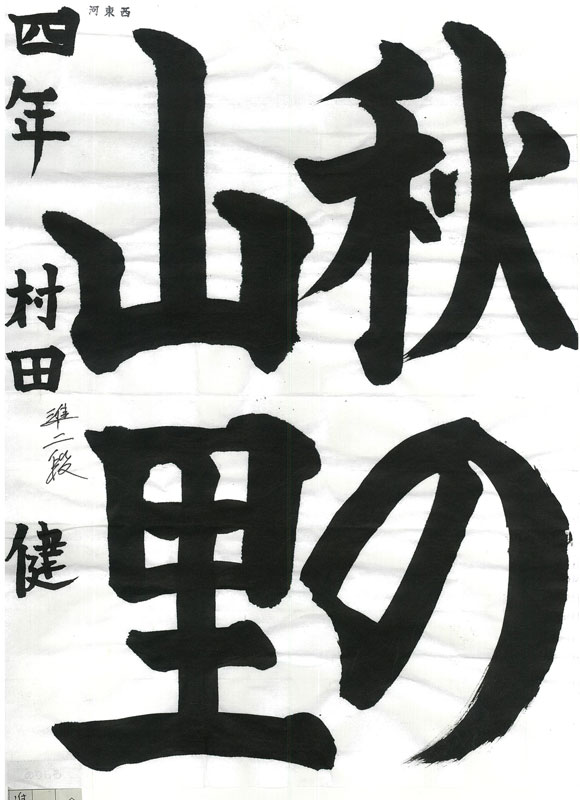 秋の
山里
四年 村田 健
準二段
河東西